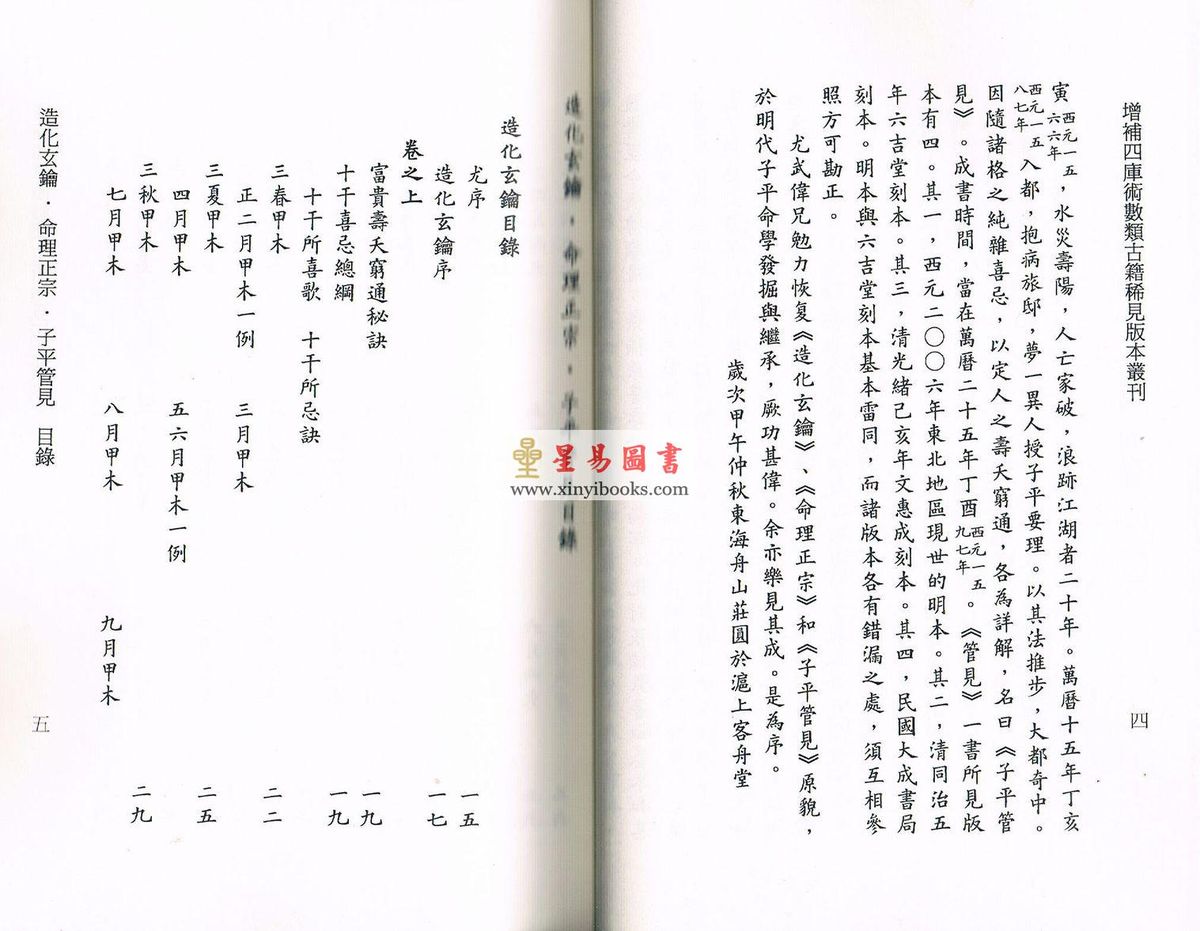 增補四庫術數類古籍稀見版本叢刊
四
寅西元一五六六年，水災壽陽，人亡家破，浪跡江湖者二十年。萬曆十五年丁亥
西元一五八七年入都，抱病旅邸，夢一異人授子平要理。以其法推步，大都奇中。
因隨諸格之純雜喜忌，以定人之壽夭窮通，各為詳解，名曰《子平管
見》。成書時間，當在萬曆二十五年丁酉西元一五九七年。《管見》一書所見版
本有四。其一，西元二〇〇六年東北地區現世的明本。其二，清同治五
年六吉堂刻本。其三，清光緒己亥年文惠成刻本。其四，民國大成書局
刻本。明本與六吉堂刻本基本雷同，而諸版本各有錯漏之處，須互相參
照方可勘正。
尤武偉兄勉力恢复《造化玄鑰》、《命理正宗》和《子平管見》原貌，
於明代子平命學發掘與繼承，厥功甚偉。余亦樂見其成。是為序。
歲次甲午仲秋東海舟山莊圓於滬上客舟堂
造化玄鑰·命理正宗·子平管見 目錄
星易圖書
www.xinyibooks.com
造化玄鑰目錄
尤序 一五
造化玄鑰序 一七
卷之上
富貴壽夭窮通秘訣 一九
十干喜忌總綱 一九
十干所喜歌 十干所忌訣
三春甲木 二二
正二月甲木一例 三月甲木
三夏甲木 二五
四月甲木 五六月甲木一例
三秋甲木 二九
七月甲木 八月甲木 九月甲木
造化玄鑰·命理正宗·子平管見 目錄
五